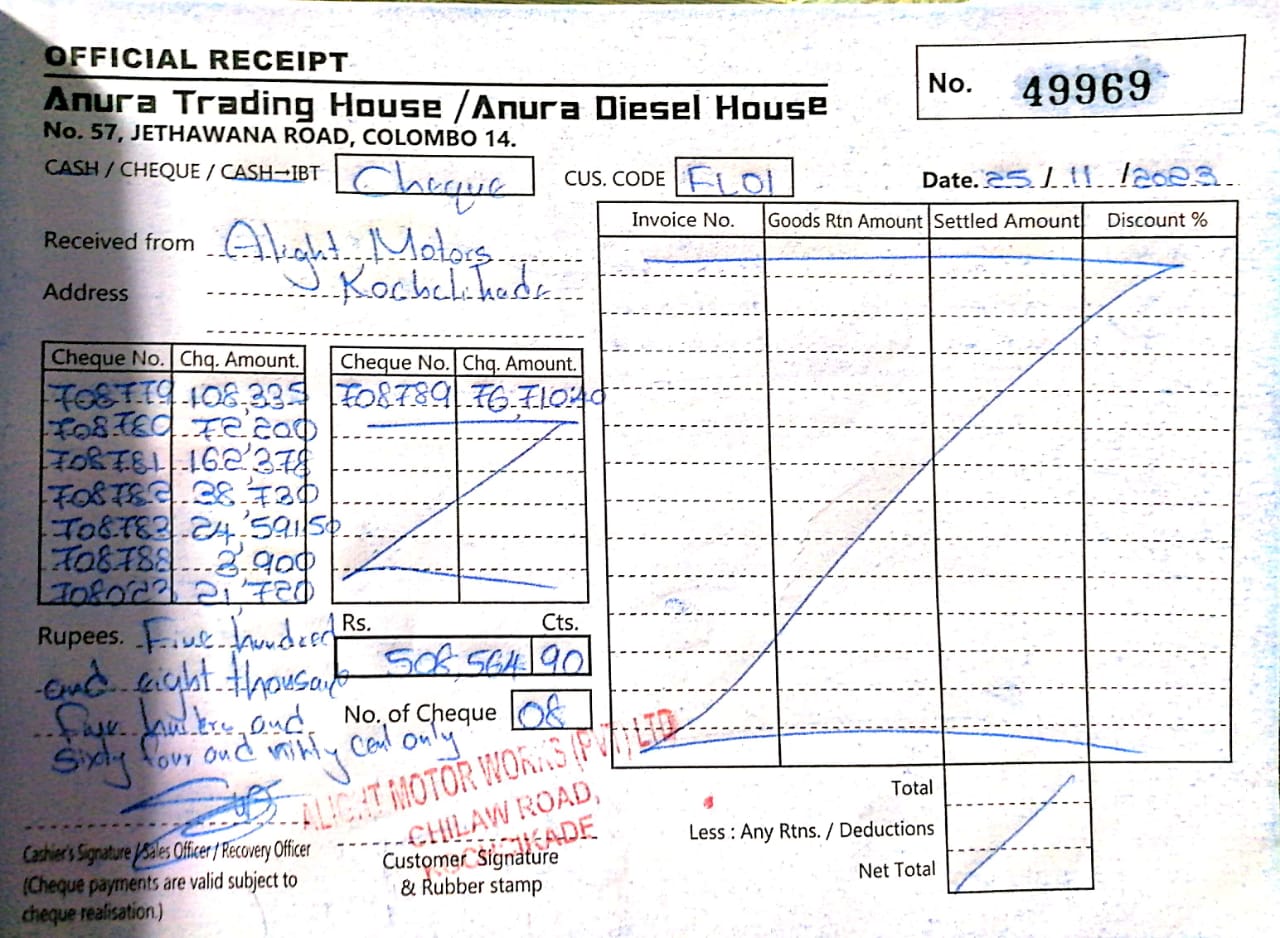 OFFICIAL RECEIPT
No. 49969
Anura Trading House / Anura Diesel House
No. 57, JETHAWANA ROAD, COLOMBO 14.
CASH / CHEQUE / CASH→IBT Cheque CUS. CODE FL01 Date. 25 / 11 / 2023
Received from Alight Motors
Address
Invoice No. Goods Rtn Amount Settled Amount Discount %
Cheque No. Chq. Amount. Cheque No. Chq. Amount.
708779 108,335 708789 76,710 40
708780 72,200
708781 162,378
708782 38,730
708783 24,591 50
708788 3,900
21,720
Rupees. Five hundred
and eight thousand
Five and
Sixty four and ninty cent only
Rs. Cts.
508,564 90
No. of Cheque 08
ALIGHT MOTOR WORKS (PVT) LTD
CHILAW ROAD,
KOCHCHIKADE
Total
Less : Any Rtns. / Deductions
Net Total
Cashier's Signature / Sales Officer / Recovery Officer
(Cheque payments are valid subject to
cheque realisation.)
Customer Signature
& Rubber stamp